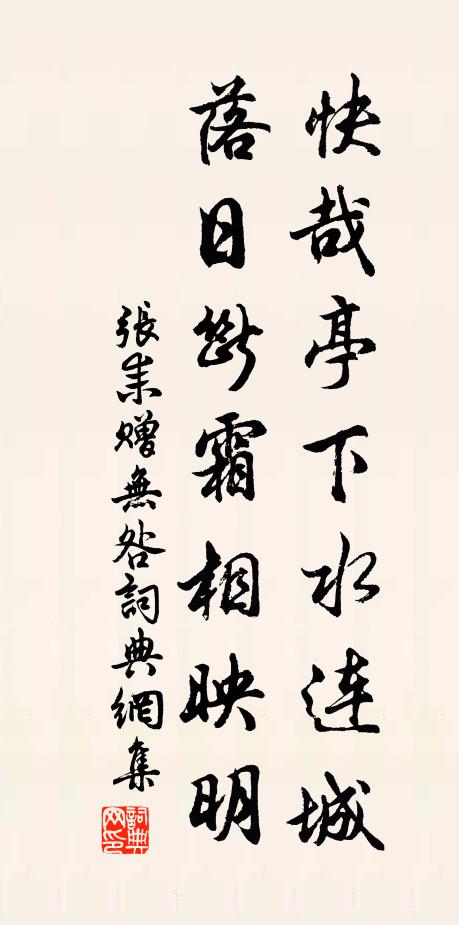 快哉亭下水连城
落日㫁霜相映明
張耒赠無咎詞典網集
詞典網印